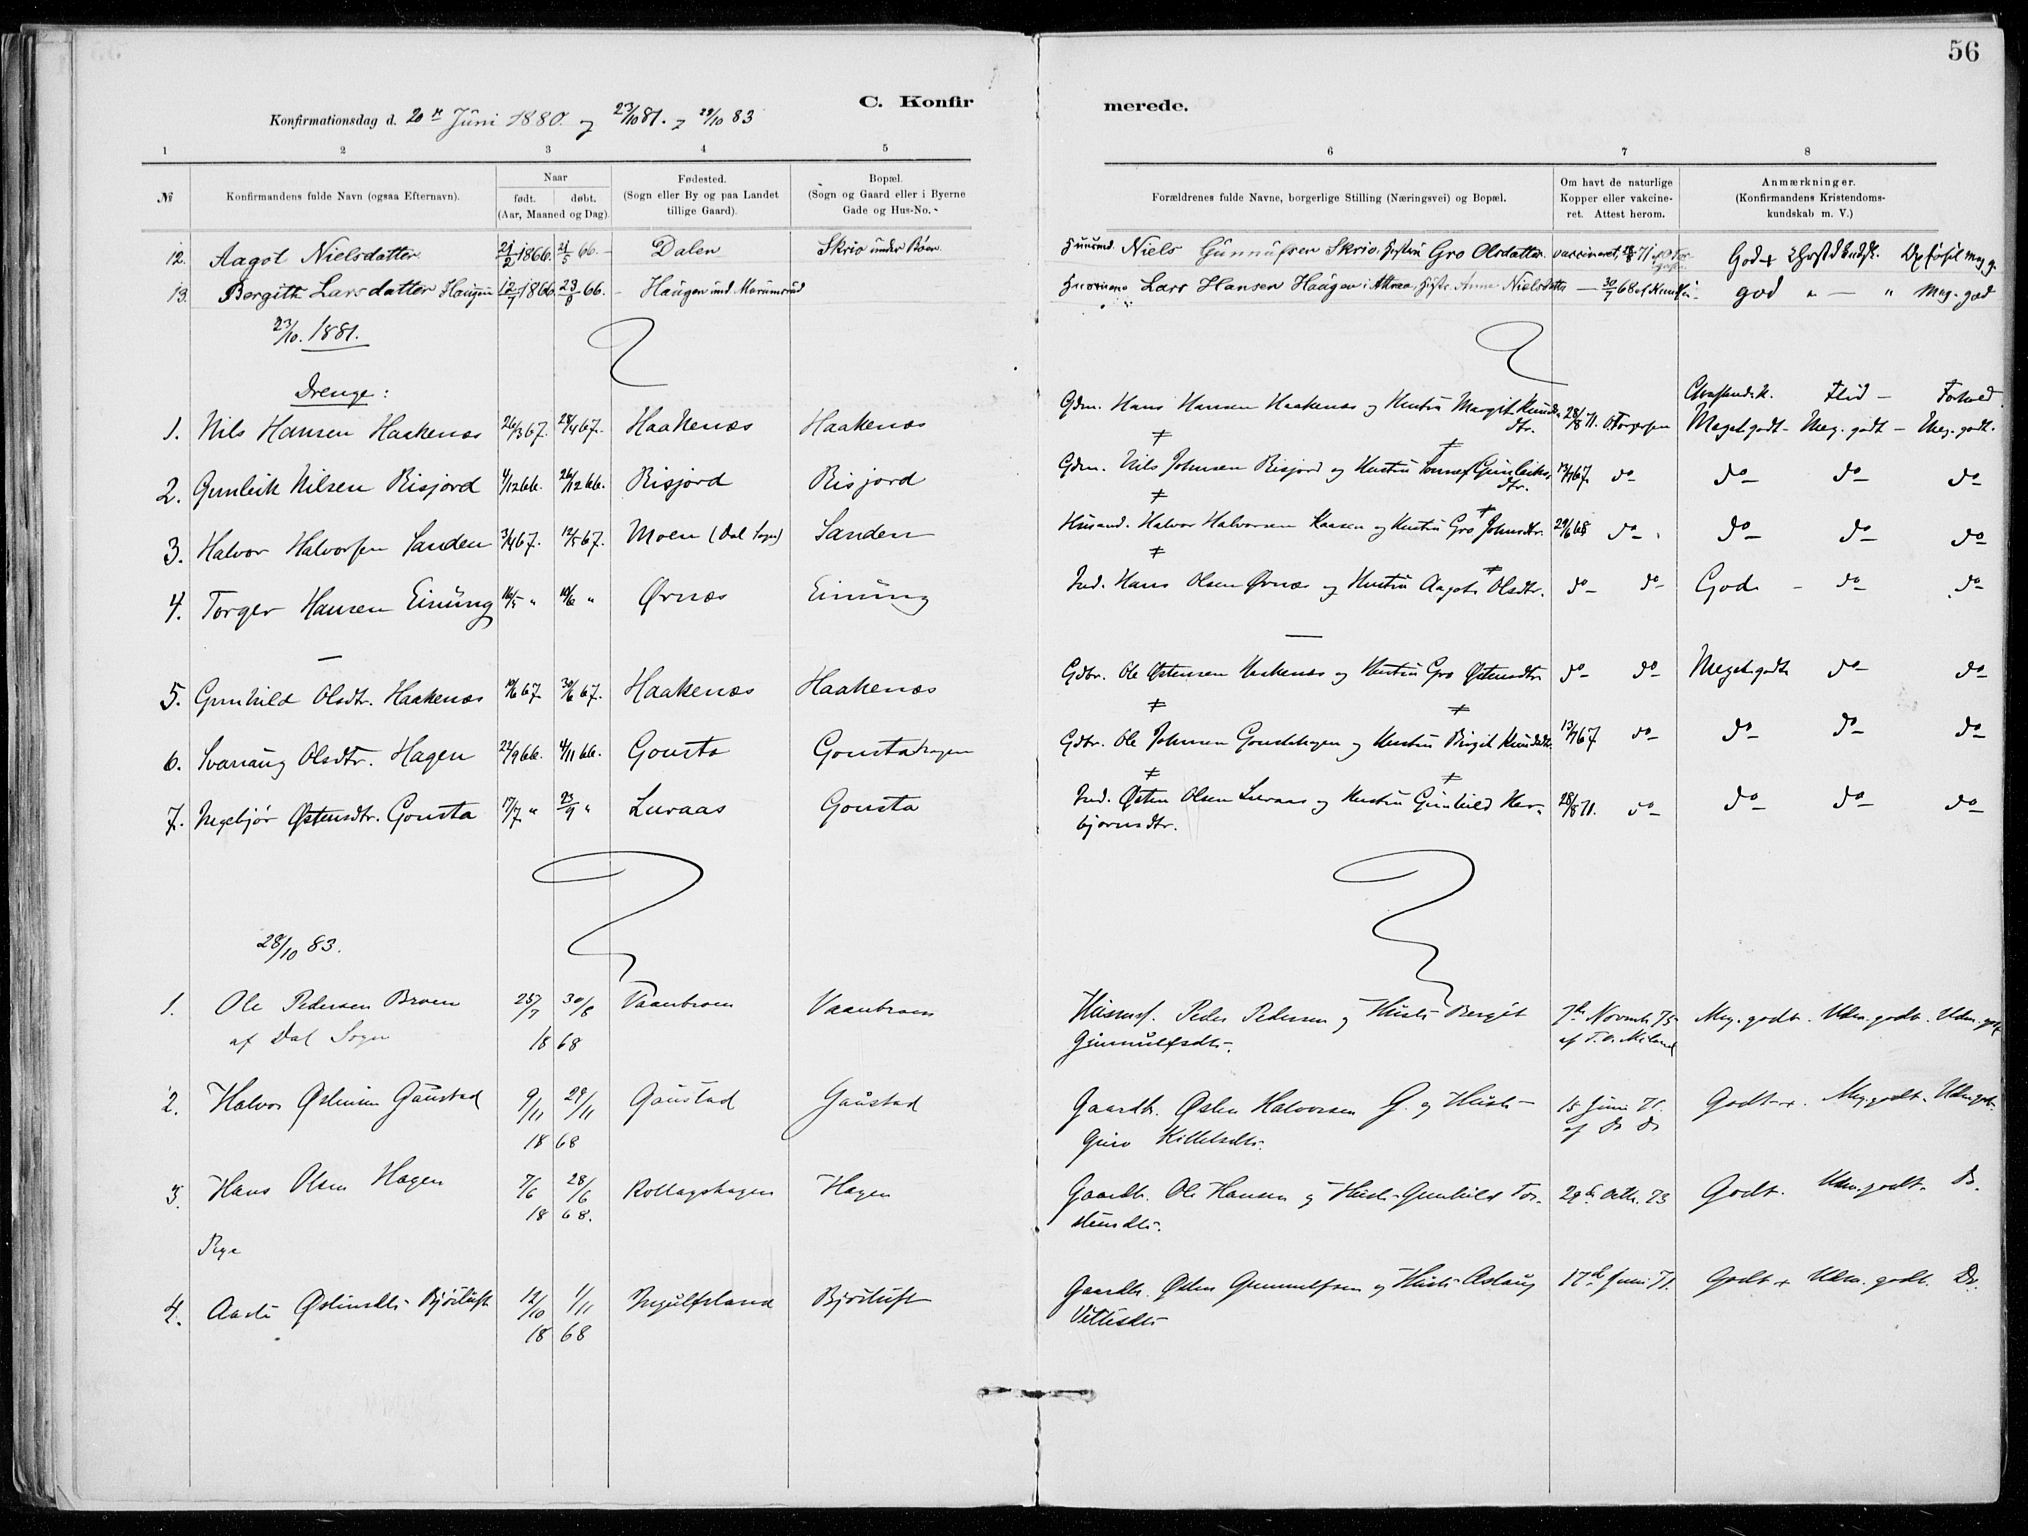 56
C. Konfirmerede.
Konfirmationsdag d. 20de Juni 1880. og 23/10 81. og 28/10 83
1 2 3 4 5 6 7 8
№ Konfirmandens fulde Navn (ogsaa Efternavn). Naar født. døbt. (Aar, Maaned og Dag). Fødested. (Sogn eller By og paa Landet tillige Gaard). Bopæl. (Sogn og Gaard eller i Byerne Gade og Hus-No. Forældrenes fulde Navne, borgerlige Stilling (Næringsvei) og Bopæl. Om havt de naturlige Kopper eller vakcineret. Attest herom. Anmærkninger. (Konfirmandens Kristendomskundskab m. V.)
12. Aagot Nielsdatter 21/2 1866. 21/5 66. – Dalen Skrio under Bøen Niels Gunnufsen Skrio. Gro Olsdatter vaccineret, 71 God +
13. Bergith Larsdatter Haugen 12/7 1866 23/9 66. – Haugen und. Marumsrud Lars Hansen Haugen i Attraa, Anne Nielsdatter — 30/7 68 god " — " Meg. god
23/10. 1881.
Drenge:
Flid – Forhold
1. Nils Hansen Haakenæs 26/3 67. 28/4 67. Haakenæs Haakenæs Gdm. Hans Hansen Haakenæs og Hustru Margit Knudsdtr. 28/8 71. Torgersen Meget godt – Meg. godt – Meg. godt.
2. Gunleik Nilsen Risjord 4/12 66. 26/12 66. Risjord Risjord Gdm. Nils Johnsen Risjord og Hustru Gunleiksdtr. 13/7 67. do do do do
3. Halvor Halvorsen Sanden 3/4 67. 12/5 67. Moen (Dal Sogn) Sanden Husmd. Halvor Halvorsen Kaasen og Hustru Gro Johnsdtr. 29/6 68 do do do do
4. Torger Hansen Einung 16/5 " 10/6 " Ørnæs Einung Ind. Hans Olsen Ørnæs og Hustru Aagot Olsdtr. do do God – do do
5. Gunhild Olsdtr. Haakenæs 10/6 67. 30/6 67. Haakenæs Haakenæs Gdbr. Ole Østensen Haakenæs og Hustru Gro Østensdtr. do do Meget godt do do
6. Svanaug Olsdtr. Hagen 22/9 66. 4/11 66. Gousta Goustahagen Gdbr. Ole Johnsen Goustahagen og Hustru Birgit Knudsdtr. 13/7 67 do do do do
7. Ingebjør Østensdtr. Gousta 17/7 " 23/9 " Luraas Gousta Ind. Østen Olsen Luraas og Hustru Gunhild Herbjørnsdtr. 28/8 71. do do do do
28/10 83.
1. Ole Pedersen Broen 25/7 30/8 Vaanbroen Vaanbroen Husmd. Peder Pedersen og Hustr. Bergit 7de Novmb. 75 Meg. godt. Udm. godt. Udm. godt
af Dal Sogn 18 68 Ginnulfsdtr. af T. O. Miland
2. Halvor Østensen Gaustad 9/11 29/11 Gaustad Gaustad Gaardbr. Østen Halvorsen G. og Hustr. 15 Juni 71. Godt +. Meg. godt. Udm. godt.
18 68 Guro Killelsdtr. af do do
3. Hans Olsen Hagen 7/6 28/6 Rollagshagen Hagen Gaardbr. Ole Hansen og Hustr. Gunhild Tor- 29de Octb. 73 Godt. Udm. godt. Do.
18 68. steinsdtr.
4. Aaste Østensdtr. Bjørtuft 12/10 1/11 Ingulfsland Bjørtuft Gaardbr. Østen Gunnulfsen og Hustr. Aslaug 17de Juni 71. Godt + Udm. godt. Do.
18 68 Vetlesdtr.